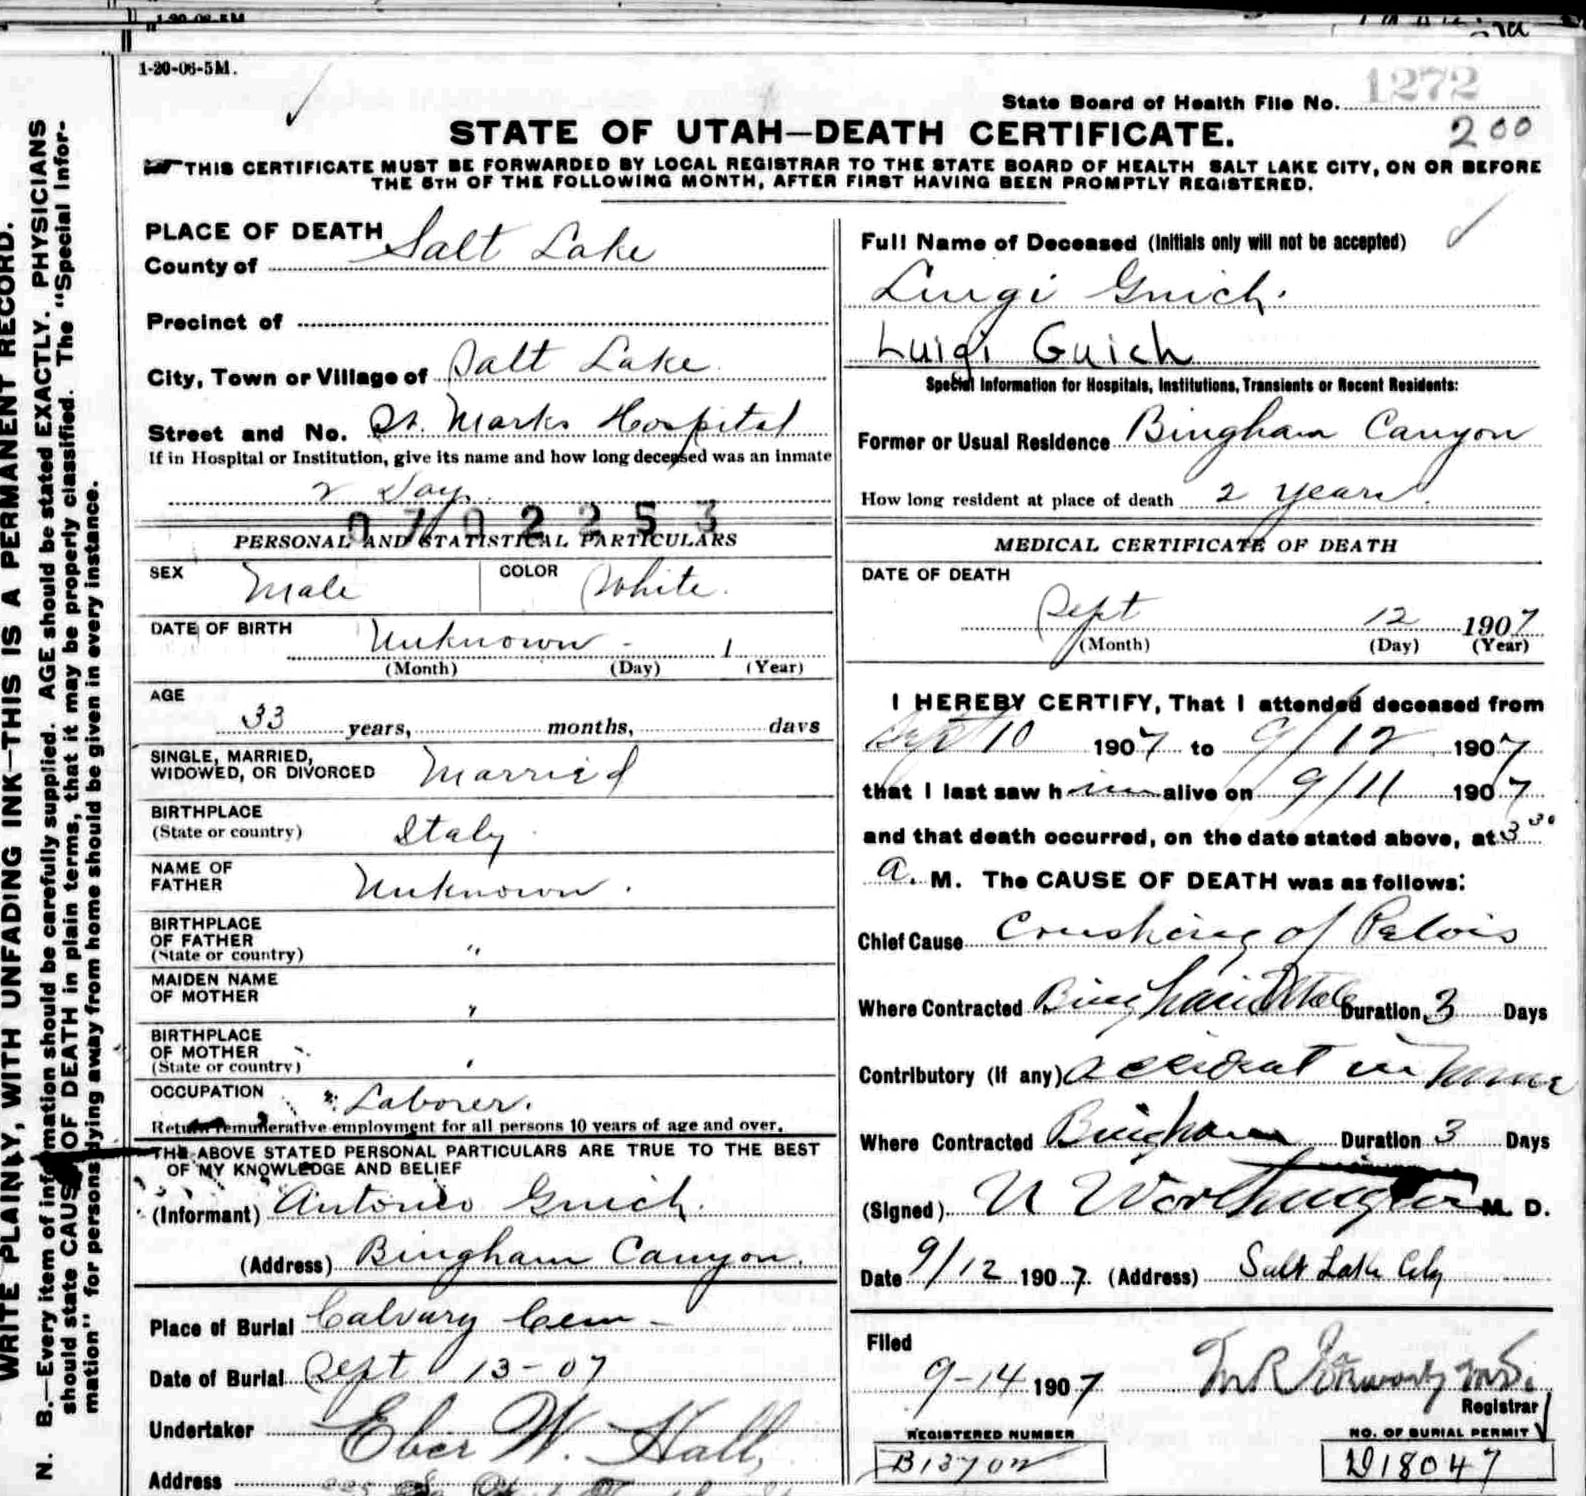 1-20-06-5M.
State Board of Health File No. 1272
200
STATE OF UTAH—DEATH CERTIFICATE.
THIS CERTIFICATE MUST BE FORWARDED BY LOCAL REGISTRAR TO THE STATE BOARD OF HEALTH SALT LAKE CITY, ON OR BEFORE
THE 5TH OF THE FOLLOWING MONTH, AFTER FIRST HAVING BEEN PROMPTLY REGISTERED.
WRITE PLAINLY, WITH UNFADING INK—THIS IS A PERMANENT RECORD.
N. B.—Every item of information should be carefully supplied. AGE should be stated EXACTLY. PHYSICIANS
should state CAUSE OF DEATH in plain terms, that it may be properly classified. The "Special Infor-
mation" for persons dying away from home should be given in every instance.
PLACE OF DEATH
County of Salt Lake
Precinct of
City, Town or Village of Salt Lake
Street and No. St. Marks Hospital
If in Hospital or Institution, give its name and how long deceased was an inmate
2 Days.
0702253
PERSONAL AND STATISTICAL PARTICULARS
SEX Male COLOR White.
DATE OF BIRTH Unknown - 1
(Month) (Day) (Year)
AGE
33 years, months, days
SINGLE, MARRIED,
WIDOWED, OR DIVORCED Married
BIRTHPLACE
(State or country) Italy
NAME OF
FATHER Unknown.
BIRTHPLACE
OF FATHER "
(State or country)
MAIDEN NAME
OF MOTHER "
BIRTHPLACE
OF MOTHER
(State or country)
OCCUPATION Laborer.
Return remunerative employment for all persons 10 years of age and over.
THE ABOVE STATED PERSONAL PARTICULARS ARE TRUE TO THE BEST
OF MY KNOWLEDGE AND BELIEF
(Informant) Antonio Guich.
(Address) Bingham Canyon.
Place of Burial Calvary Cem -
Date of Burial Sept 13-07
Undertaker Eber W. Hall,
Address
Full Name of Deceased (Initials only will not be accepted)
Luigi Guich.
Luigi Guich
Special Information for Hospitals, Institutions, Transients or Recent Residents:
Former or Usual Residence Bingham Canyon
How long resident at place of death 2 years.
MEDICAL CERTIFICATE OF DEATH
DATE OF DEATH
Sept 12 1907
(Month) (Day) (Year)
I HEREBY CERTIFY, That I attended deceased from
Sept 10 1907 to 9/12 1907
that I last saw him alive on 9/11 1907
and that death occurred, on the date stated above, at 3 30
a. M. The CAUSE OF DEATH was as follows:
Chief Cause Crushing of Pelvis
Where Contracted Bingham Utah Duration 3 Days
Contributory (if any) accident in mine
Where Contracted Bingham Duration 3 Days
(Signed) Worthington M. D.
Date 9/12 1907. (Address) Salt Lake City
Filed
9-14 1907
Registrar
REGISTERED NUMBER
NO. OF BURIAL PERMIT
D18047